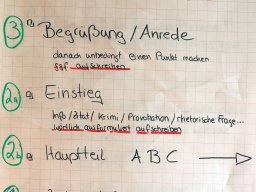 3 Begrüßung / Anrede
danach unbedingt einen Punkt machen
ggf aufschreiben
2a Einstieg
Info / Zitat / Krimi / Provokation / rhetorische Frage...
wörtlich ausformuliert aufschreiben
2b Hauptteil A B C